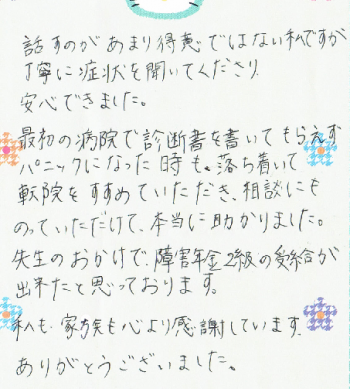 話すのがあまり得意ではない私ですが
丁寧に症状を聞いてくださり
安心できました。
最初の病院で診断書を書いてもらえず
パニックになった時も、落ち着いて
転院をすすめていただき、相談にも
のっていただけて、本当に助かりました。
先生のおかげで、障害年金2級の受給が
出来たと思っております。
私も、家族も心より感謝しています。
ありがとうございました。